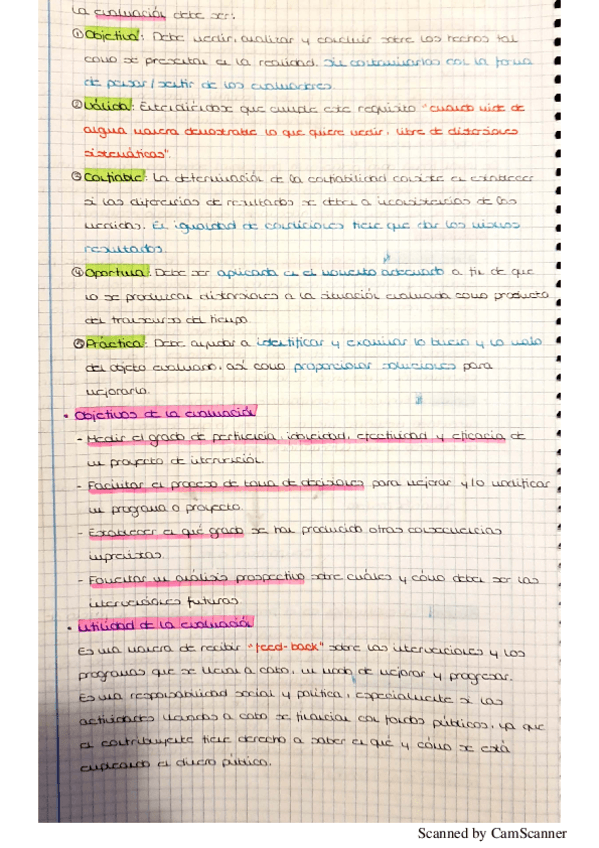 La evaluación debe ser:
① Objetiva: Debe medir, analizar y concluir sobre los hechos tal
como se presentan en la realidad. Sin contaminarlos con la forma
de pensar/sentir de los evaluadores.
② Válida: Entendiéndose que cumple este requisito "cuando mide de
alguna manera demostrable lo que quiere medir, libre de distorsiones
sistemáticas".
③ Confiable: La determinación de la confiabilidad consiste en establecer
si las diferencias de resultados se deben a inconsistencias de las
medidas. En igualdad de condiciones tiene que dar los mismos
resultados.
④ Oportuna: Debe ser aplicada en el momento adecuado a fin de que
no se produzcan distorsiones a la situación evaluada como producto
del transcurso del tiempo.
⑤ Práctica: Debe ayudar a identificar y examinar lo bueno y lo malo
del objeto evaluado, así como proporcionar soluciones para
mejorarlo.
• Objetivos de la evaluación
- Medir el grado de pertinencia, idoneidad, efectividad y eficacia de
un proyecto de intervención.
- Facilitar el proceso de toma de decisiones para mejorar y/o modificar
un programa o proyecto.
- Establecer en qué grado se han producido otras consecuencias
imprevistas.
- Fomentar un análisis prospectivo sobre cuáles y cómo deben ser las
intervenciones futuras.
• Utilidad de la evaluación
Es una manera de recibir "feed-back" sobre las intervenciones y los
programas que se llevan a cabo, un modo de mejorar y progresar.
Es una responsabilidad social y política, especialmente si las
actividades llevadas a cabo se financian con fondos públicos, ya que
el contribuyente tiene derecho a saber en qué y cómo se está
empleando el dinero público.
Scanned by CamScanner